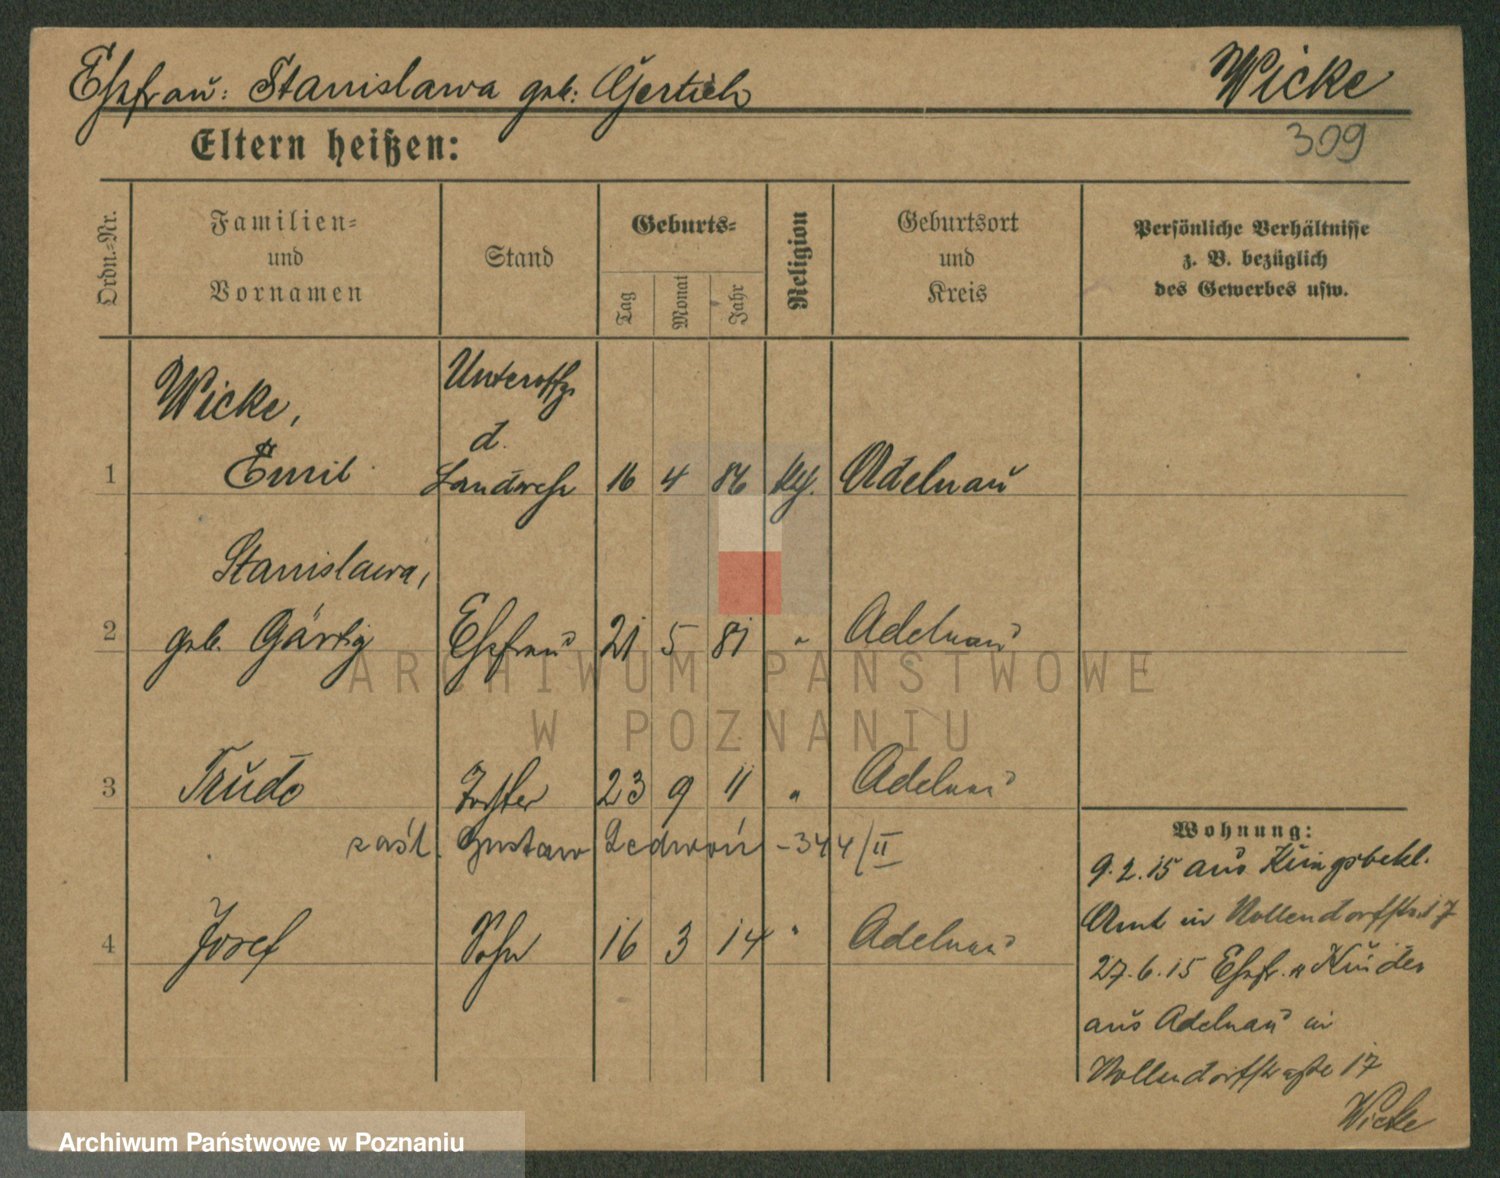 Ehefrau: Stanislawa geb: Gertich Wicke
Eltern heißen: 309
Ordn.-Nr.
Familien-
und
Vornamen
Stand
Geburts-
Tag
Monat
Jahr
Religion
Geburtsort
und
Kreis
Persönliche Verhältnisse
z. B. bezüglich
des Gewerbes usw.
Wicke, Unteroffz
d.
1 Emil Landwehr 16 4 86 Adelnau
Stanislawa,
2 geb. Gärtig Ehefrau 21 5 81 " Adelnau
3 Trude Tochter 23 9 11 " Adelnau
zaśl. Gustaw Ledwoń - 344/II
4 Josef Sohn 16 3 14 " Adelnau
Wohnung:
9.2.15 aus
Amt in Nollendorfstr. 17
27.6.15 Ehefr. u Kinder
aus Adelnau in
Nollendorfstraße 17
Wicke
ARCHIWUM PAŃSTWOWE
W POZNANIU
Archiwum Państwowe w Poznaniu